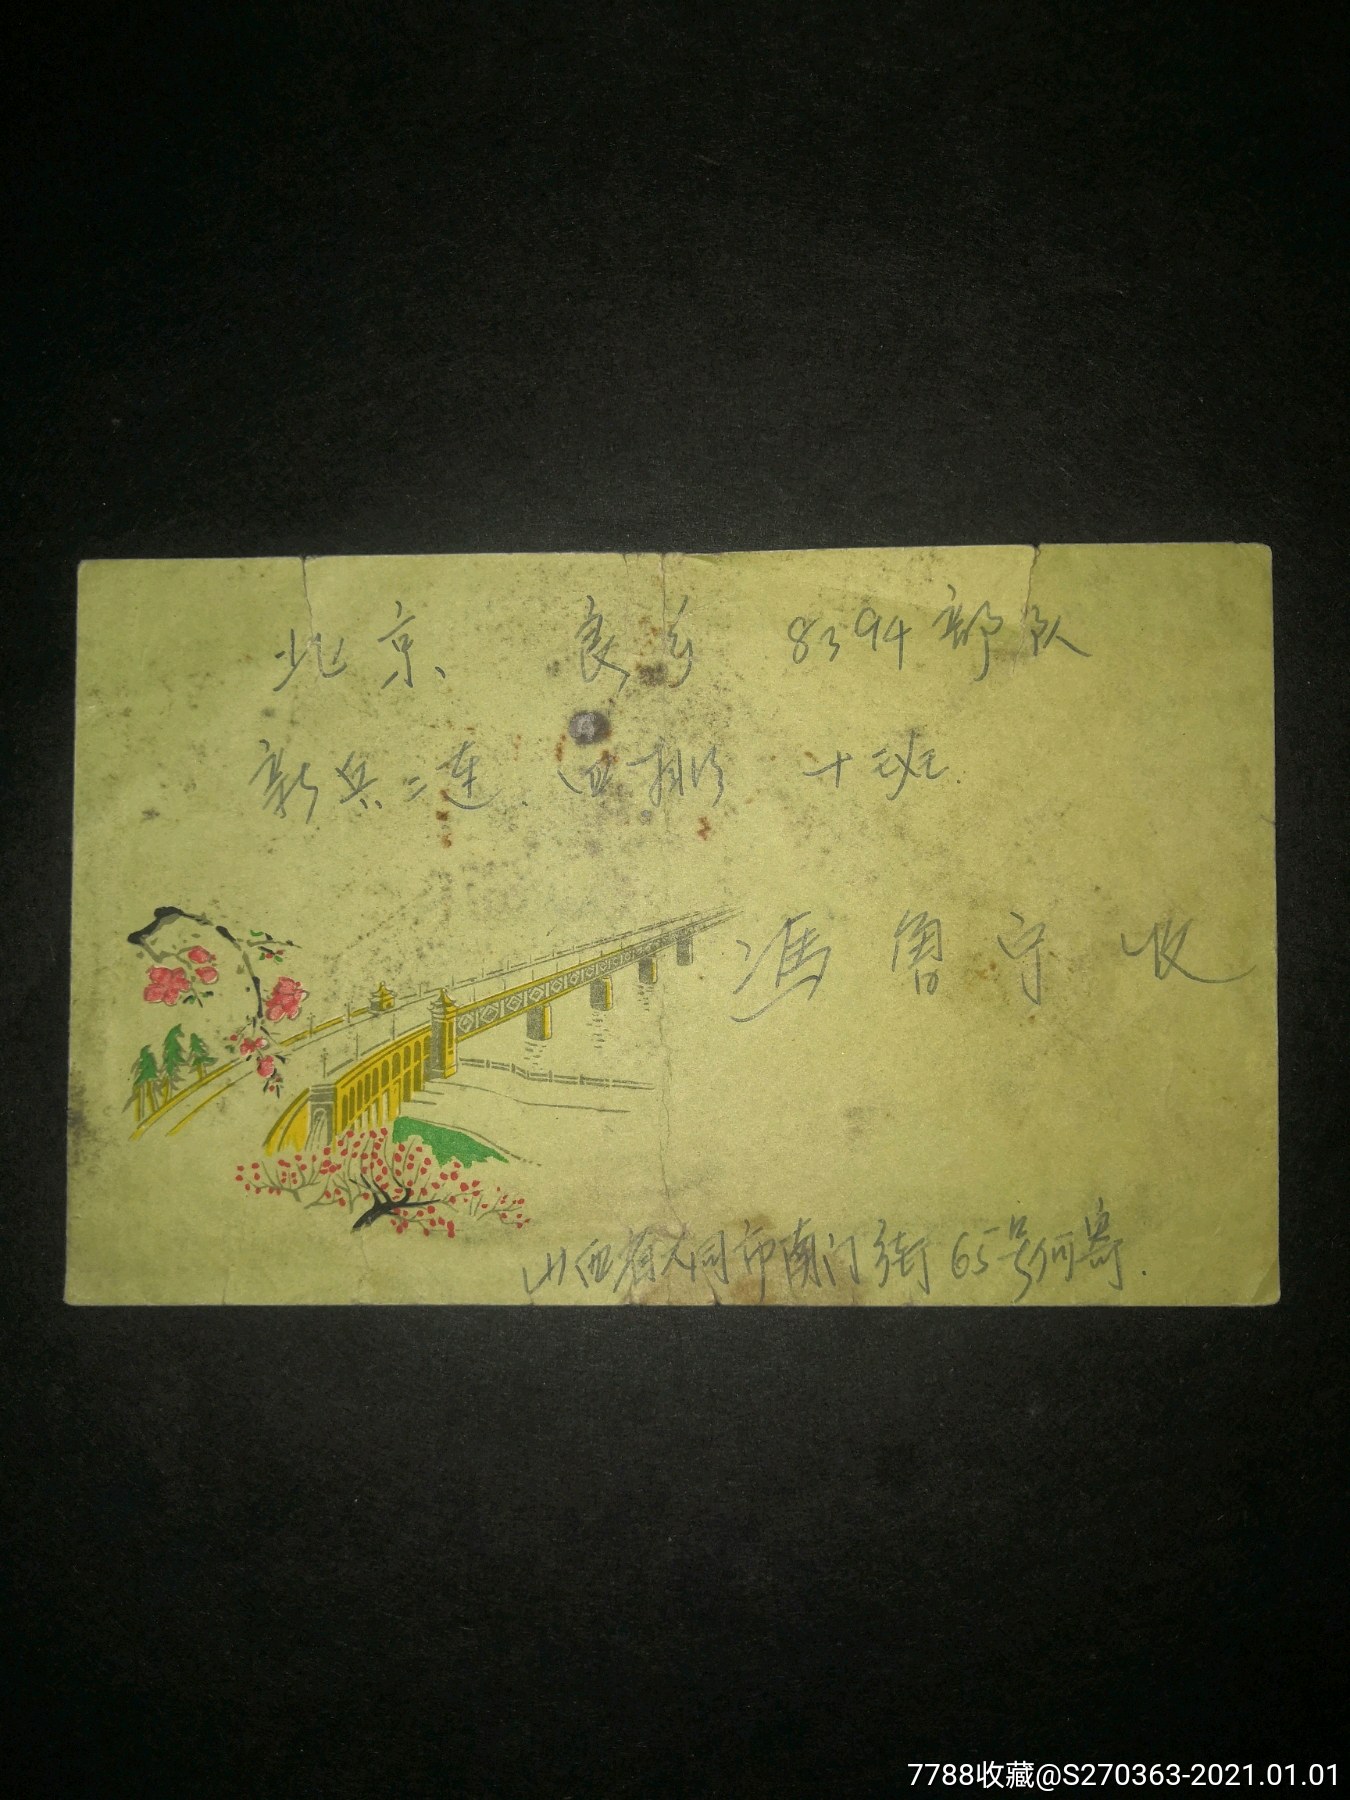 北京 良乡 8394部队
新兵二连 四排 十二班.
冯鲁宁 收
山西省大同市南门街65号何寄.
7788收藏@S270363-2021.01.01